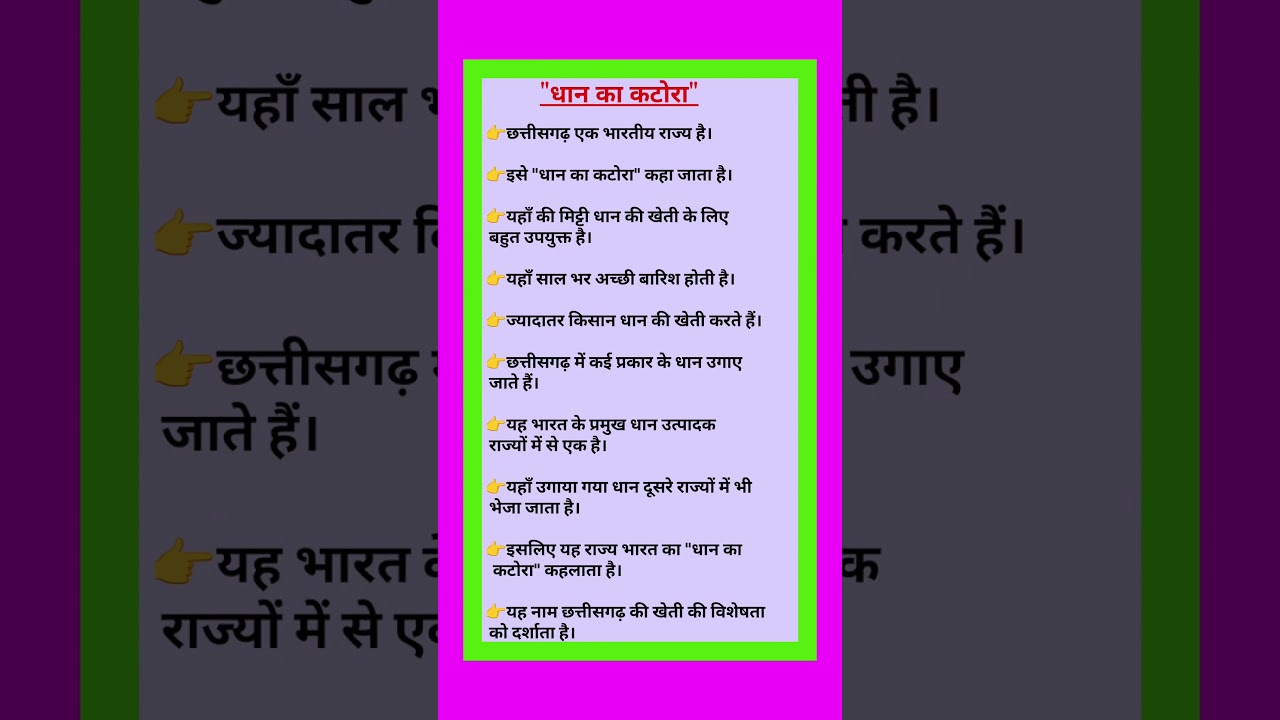 "धान का कटोरा"
👉छत्तीसगढ़ एक भारतीय राज्य है।
👉इसे "धान का कटोरा" कहा जाता है।
👉यहाँ की मिट्टी धान की खेती के लिए
बहुत उपयुक्त है।
👉यहाँ साल भर अच्छी बारिश होती है।
👉ज्यादातर किसान धान की खेती करते हैं।
👉छत्तीसगढ़ में कई प्रकार के धान उगाए
जाते हैं।
👉यह भारत के प्रमुख धान उत्पादक
राज्यों में से एक है।
👉यहाँ उगाया गया धान दूसरे राज्यों में भी
भेजा जाता है।
👉इसलिए यह राज्य भारत का "धान का
कटोरा" कहलाता है।
👉यह नाम छत्तीसगढ़ की खेती की विशेषता
को दर्शाता है।